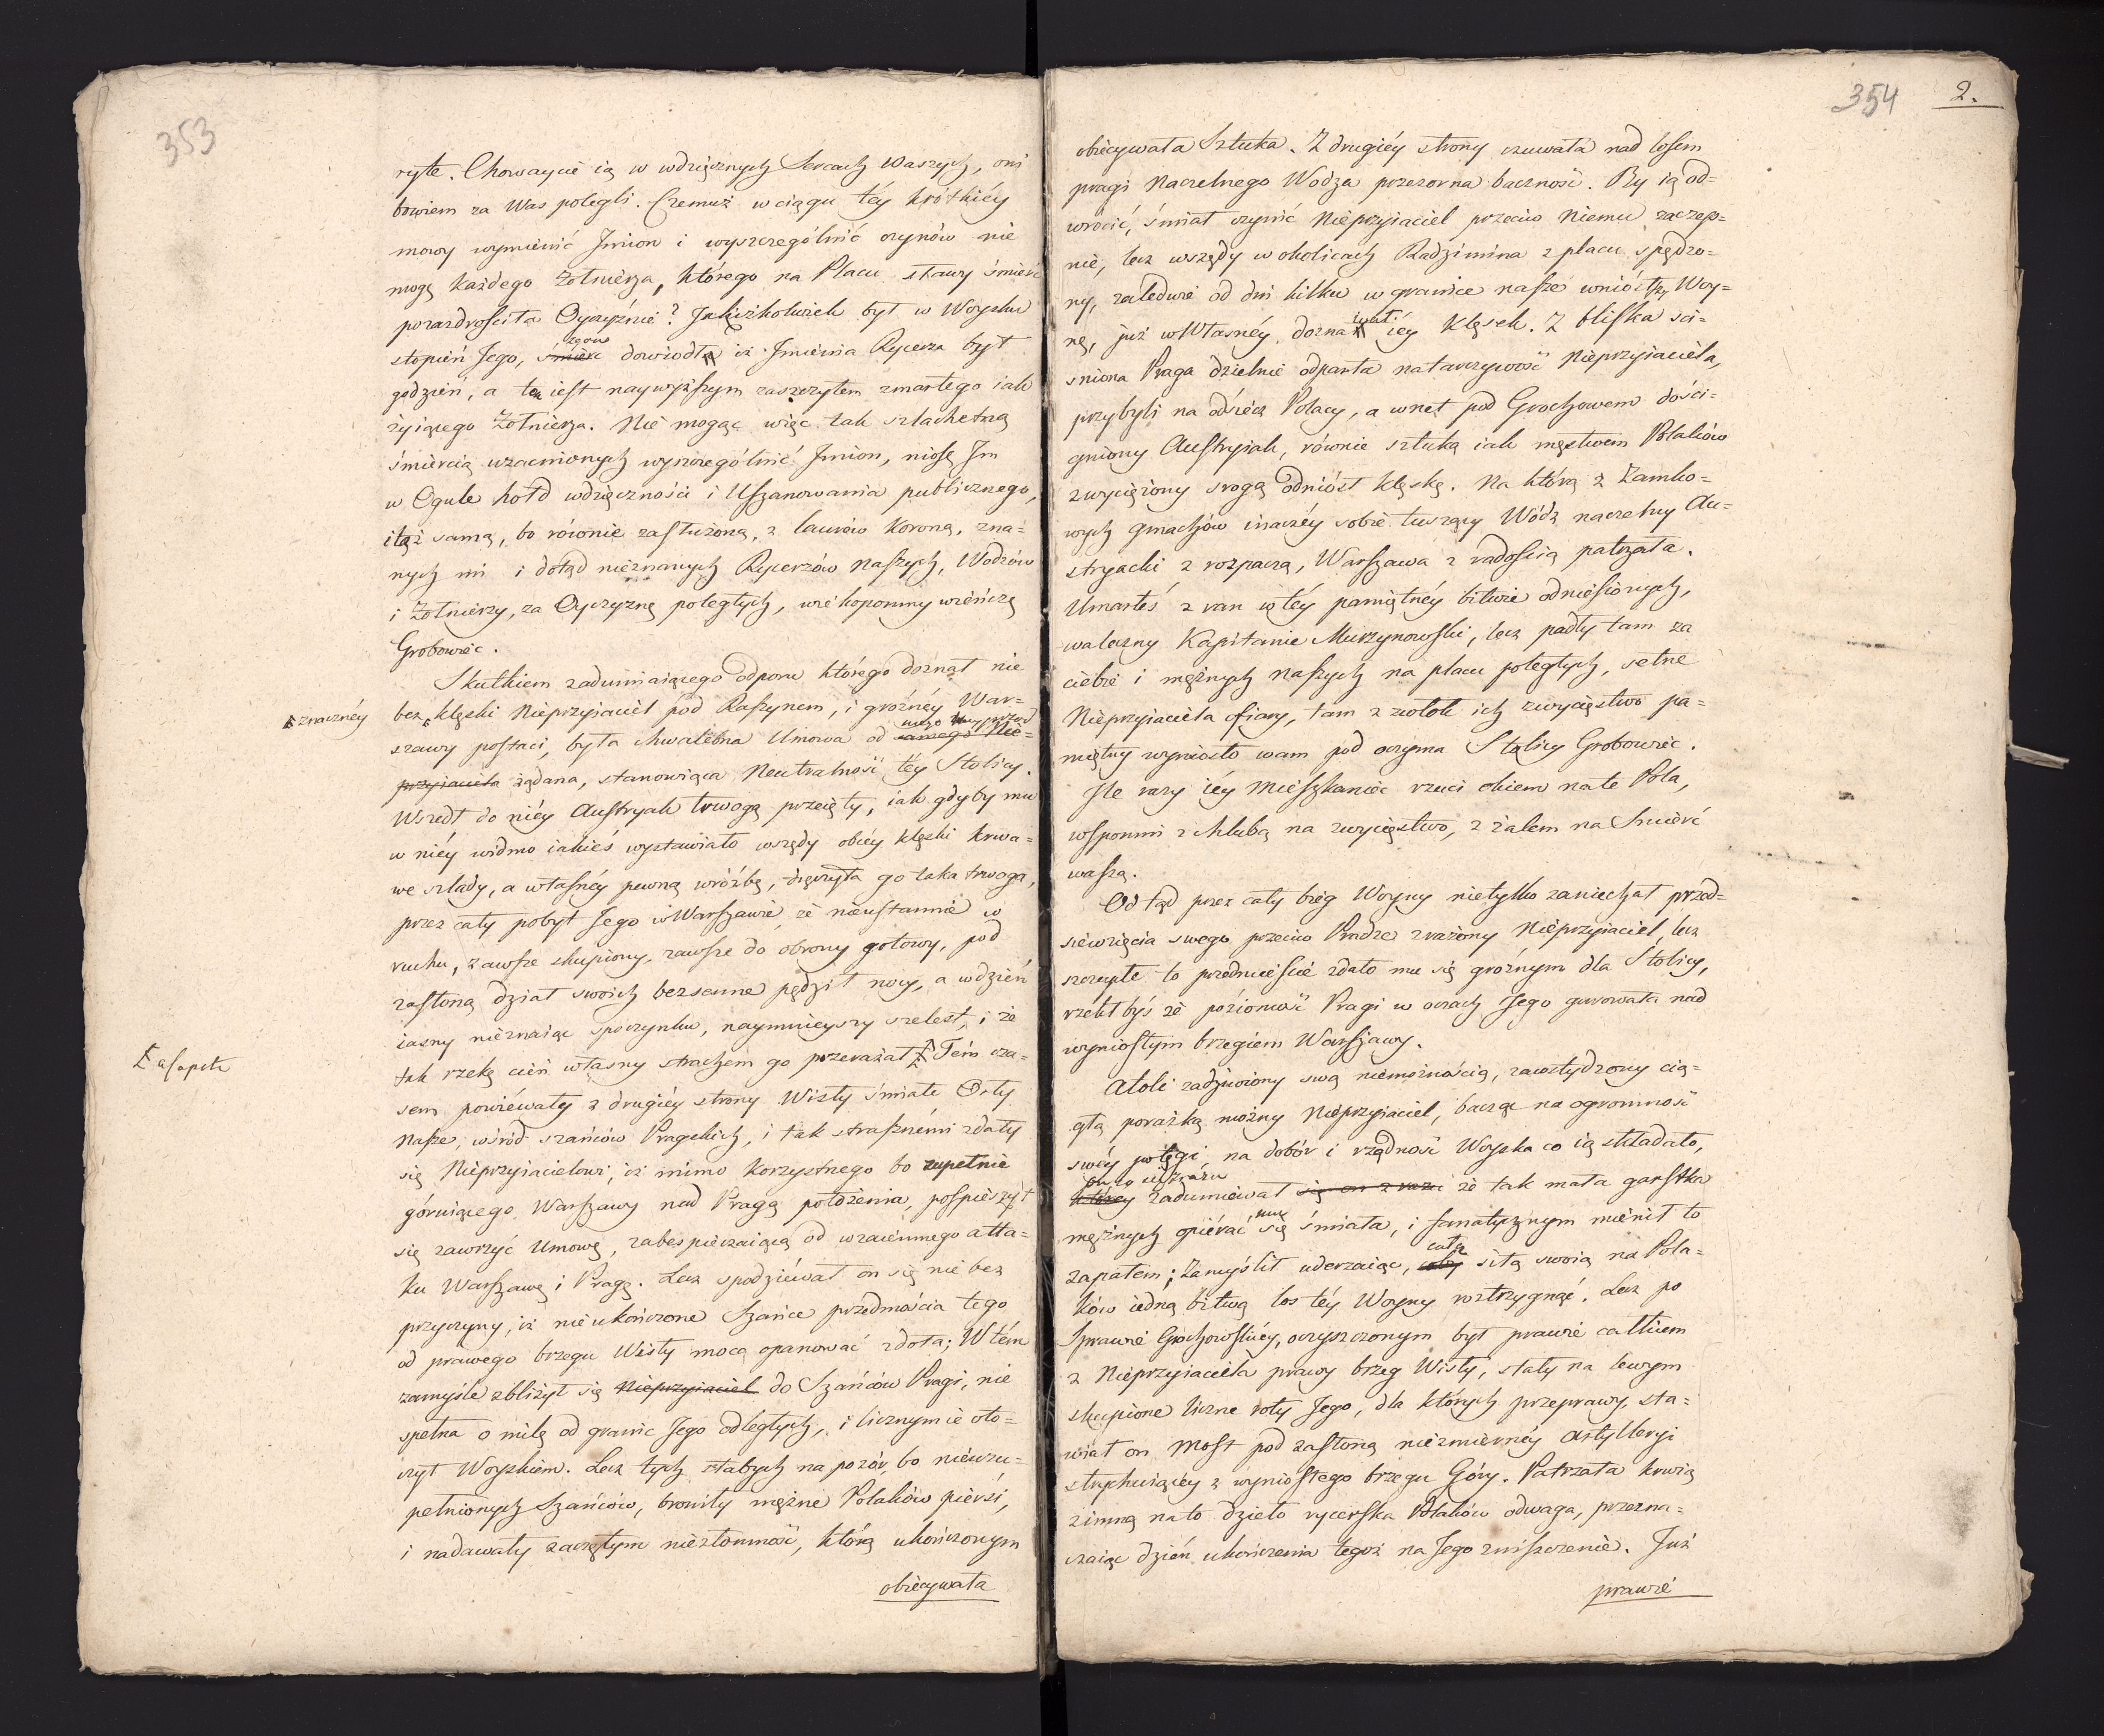 353
ryte. Chowaycie ią w wdzięcznych Sercach Waszych, oni
bowiem za Was polegli. Czemuż w ciągu téy krótkiéy
mowy wymienić Imion i wyszczególnić czynów nie
mogę każdego Żołnierza, którego na Placu sławy śmierć
pozazdrościła Oyczyźnie? Jakiżkolwiek był w Woysku
stopień Jego, śmierć zgon dowiodł iż Imienia Rycerza był
godzien, a ten iest naywyższym zaszczytem zmarłego iak
żyiącego Żołnierza. Nie mogąc więc tak szlachetną
śmiercią uzacnionych wyszczególnić Imion, niosę Im
w Ogule hołd wdzięczności i Uszanowania publicznego,
i tąż samą, bo równie zasłużoną, z laurów Koroną, zna-
nych mi i dotąd nieznanych Rycerzów Naszych, Wodzów
i Żołnierzy, za Oyczyznę poległych, wiekopomny wieńczę
Grobowiec.
Skutkiem zadumiaiącego odporu którego doznał nie
znacznéy
bez klęski Nieprzyiaciel pod Raszynem, i groźnéy War-
szawy postaci, była chwalebna Umowa od samego Nie-
przyiaciela żądana, stanowiąca Neutralność téy Stolicy.
Wszedł do niéy Austryak trwogą przeięty, iak gdyby mu
w niéy widmo iakieś wystawiało wszędy obcéy klęski krwa-
we szlady, a własnéy pewną wróżbę, dręczyła go taka trwoga,
przez cały pobyt Jego w Warszawie, że nieustannie w
ruchu, zawsze skupiony, zawsze do obrony gotowy, pod
zasłoną dział swoich bezsenne pędził nocy, a w dzień
iasny nieznaiąc spoczynku, naymnieyszy szelest, i że
tak rzekę cień własny strachem go przerażał. Tém cza-
sem powiéwały z drugiéy strony Wisły śmiałe Orły
Nasze, wśród szańców Pragskich, i tak strasznémi zdały
się Nieprzyiacielowi, iż mimo korzystnego bo zupełnie
góruiącego Warszawy nad Pragą położenia, pospieszył
się zawrzyć Umowę, zabespieczaiącą od wzaiemnego atta-
ku Warszawę i Pragę. Lecz spodziéwał on się nie bez
przyczyny, iż nieukończone Szańce przedmościa tego
od prawego brzegu Wisły mocą opanować zdoła; W tém
zamyśle zbliżył się Nieprzyiaciel do Szańców Pragi, nie
spełna o milę od granic Jego odległych, i licznym ie oto-
czył Woyskiem. Lecz tych słabych na pozór, bo nieuzu-
pełnionych Szańców, broniły mężne Polaków piersi,
i nadawały zaczętym niezłomność, którą ukończonym
obiecywała
354
2.
obiecywała Sztuka. Z drugiéy strony czuwała nad losem
Pragi Naczelnego Wodza przezorna baczność. By ią od-
wrócić, śmiał czynić Nieprzyiaciel przeciw Niemu zaczep-
nie, lecz wszędy w okolicach Radzimina z placu spędzo-
ny, zaledwie od dni kilku w granice nasze wniósłszy Woy-
nę, już w własnéy doznawał iéy klęsek. Z bliska ści-
śniona Praga dzielnie odparła natarczywość Nieprzyiaciela,
przybyli na odsiecz Polacy, a wnet pod Grochowem dości-
gniony Austryiak, równie sztuką iak męstwem Polaków
zwyciężony srogą odniósł klęskę. Na którą z Zamko-
wych gmachów inaczéy sobie tuszący Wódz naczelny Au-
stryacki z rozpaczą, Warszawa z radością patrzała.
Umarłeś z ran w téy pamiętnéy bitwie odniesionych,
waleczny Kapitanie Murzynowski, lecz padły tam za
ciebie i mężnych Naszych na placu poległych, setne
Nieprzyiaciela ofiary, tam z zwłok ich zwycięstwo pa-
miętny wyniosło wam pod oczyma Stolicy Grobowiec.
Ile razy iéy Mieszkaniec rzuci okiem na te Pola,
wspomni z chlubą na zwycięstwo, z żalem na Śmierć
waszą.
Od tąd przez cały bieg Woyny nietylko zaniechał przed-
sięwzięcia swego przeciw Pradze zrażony Nieprzyiaciel, lecz
szczupłe to przedmieście zdało mu się groźnym dla Stolicy,
rzekł byś że poziomość Pragi w oczach Jego gurowała nad
wyniosłym brzegiem Warszawy.
Atoli zadziwiony swą niemożnością, zawstydzony cią-
głą porażką możny Nieprzyiaciel, bacząc na ogromność
swéy potęgi, na dobór i rządność Woyska co ią składało,
któréy zadumiéwał się on z razu że tak mała garstka
mężnych opiérać mu się śmiała, i fanatycznym mienił to
zapałem; Zamyślił uderzaiąc, całą siłą swoią na Pola-
ków iedną bitwą los téy Woyny roztrzygnąć. Lecz po
Sprawie Grochowskiéy, oczyszczonym był prawie całkiem
z Nieprzyiaciela prawy brzeg Wisły, stały na lewym
skupione liczne roty Jego, dla których przeprawy, sta-
wiał on Most pod zasłoną niezmiernéy Artylleryi
strychuiącéy z wyniosłego brzegu Góry. Patrzała krwią
zimną na to dzieło rycerska Polaków odwaga, przezna-
czaiąc dzień ukończenia tegoż na Jego zniszczenie. Już
prawie